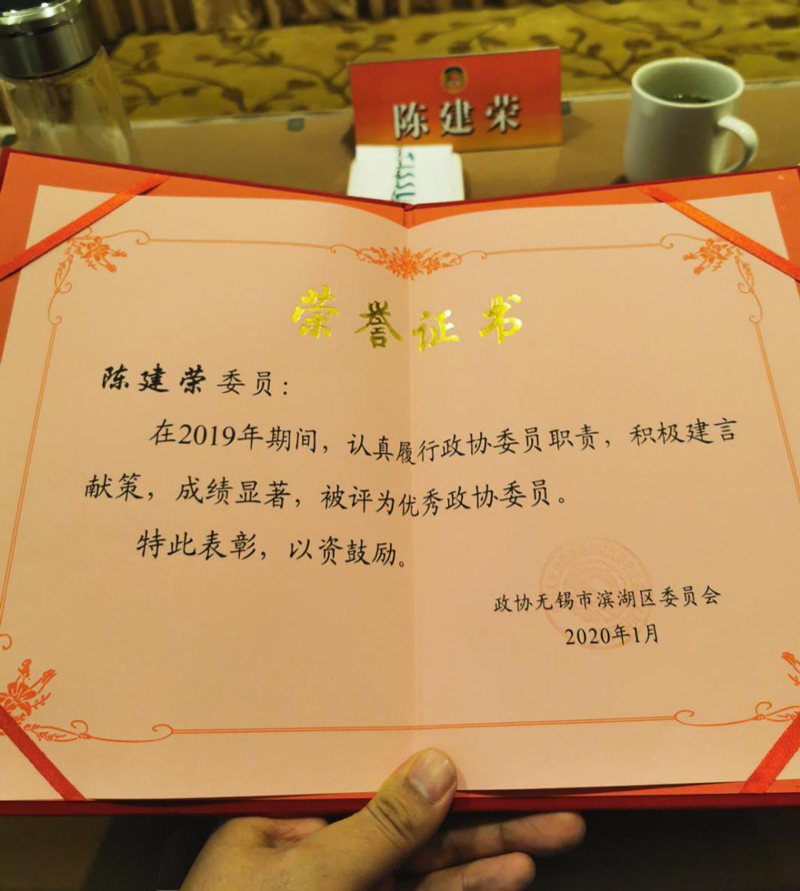 陈建荣
荣誉证书
陈建荣委员：
在2019年期间，认真履行政协委员职责，积极建言
献策，成绩显著，被评为优秀政协委员。
特此表彰，以资鼓励。
政协无锡市滨湖区委员会
2020年1月